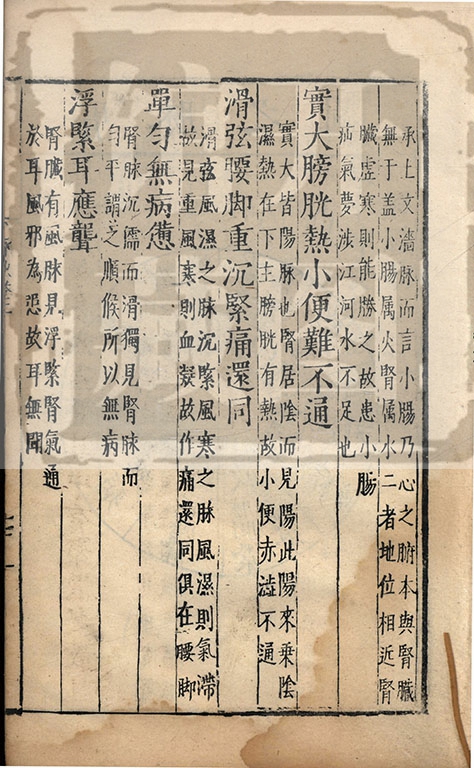 承上文濇脉而言小腸乃心之腑本與腎臟
無于盖小腸属火腎属水二者地位相近腎
臟虛寒則能勝之故患小腸
疝氣夢涉江河水不足也
實大膀胱熱小便難不通
實大皆陽脉也腎居陰而見陽此陽來乗陰
濕熱在下主膀胱有熱故小便赤澁不通
滑弦腰脚重沉緊痛還同
滑弦風濕之脉沉緊風寒之脉風濕則氣滯
故見重風寒則血凝故作痛還同俱在腰脚
單匀無病憊
腎脉沉濡而滑獨見腎脉而
匀平謂之順候所以無病
浮緊耳應聾
腎臟有風脉見浮緊腎氣通
於耳風邪為恶故耳無聞